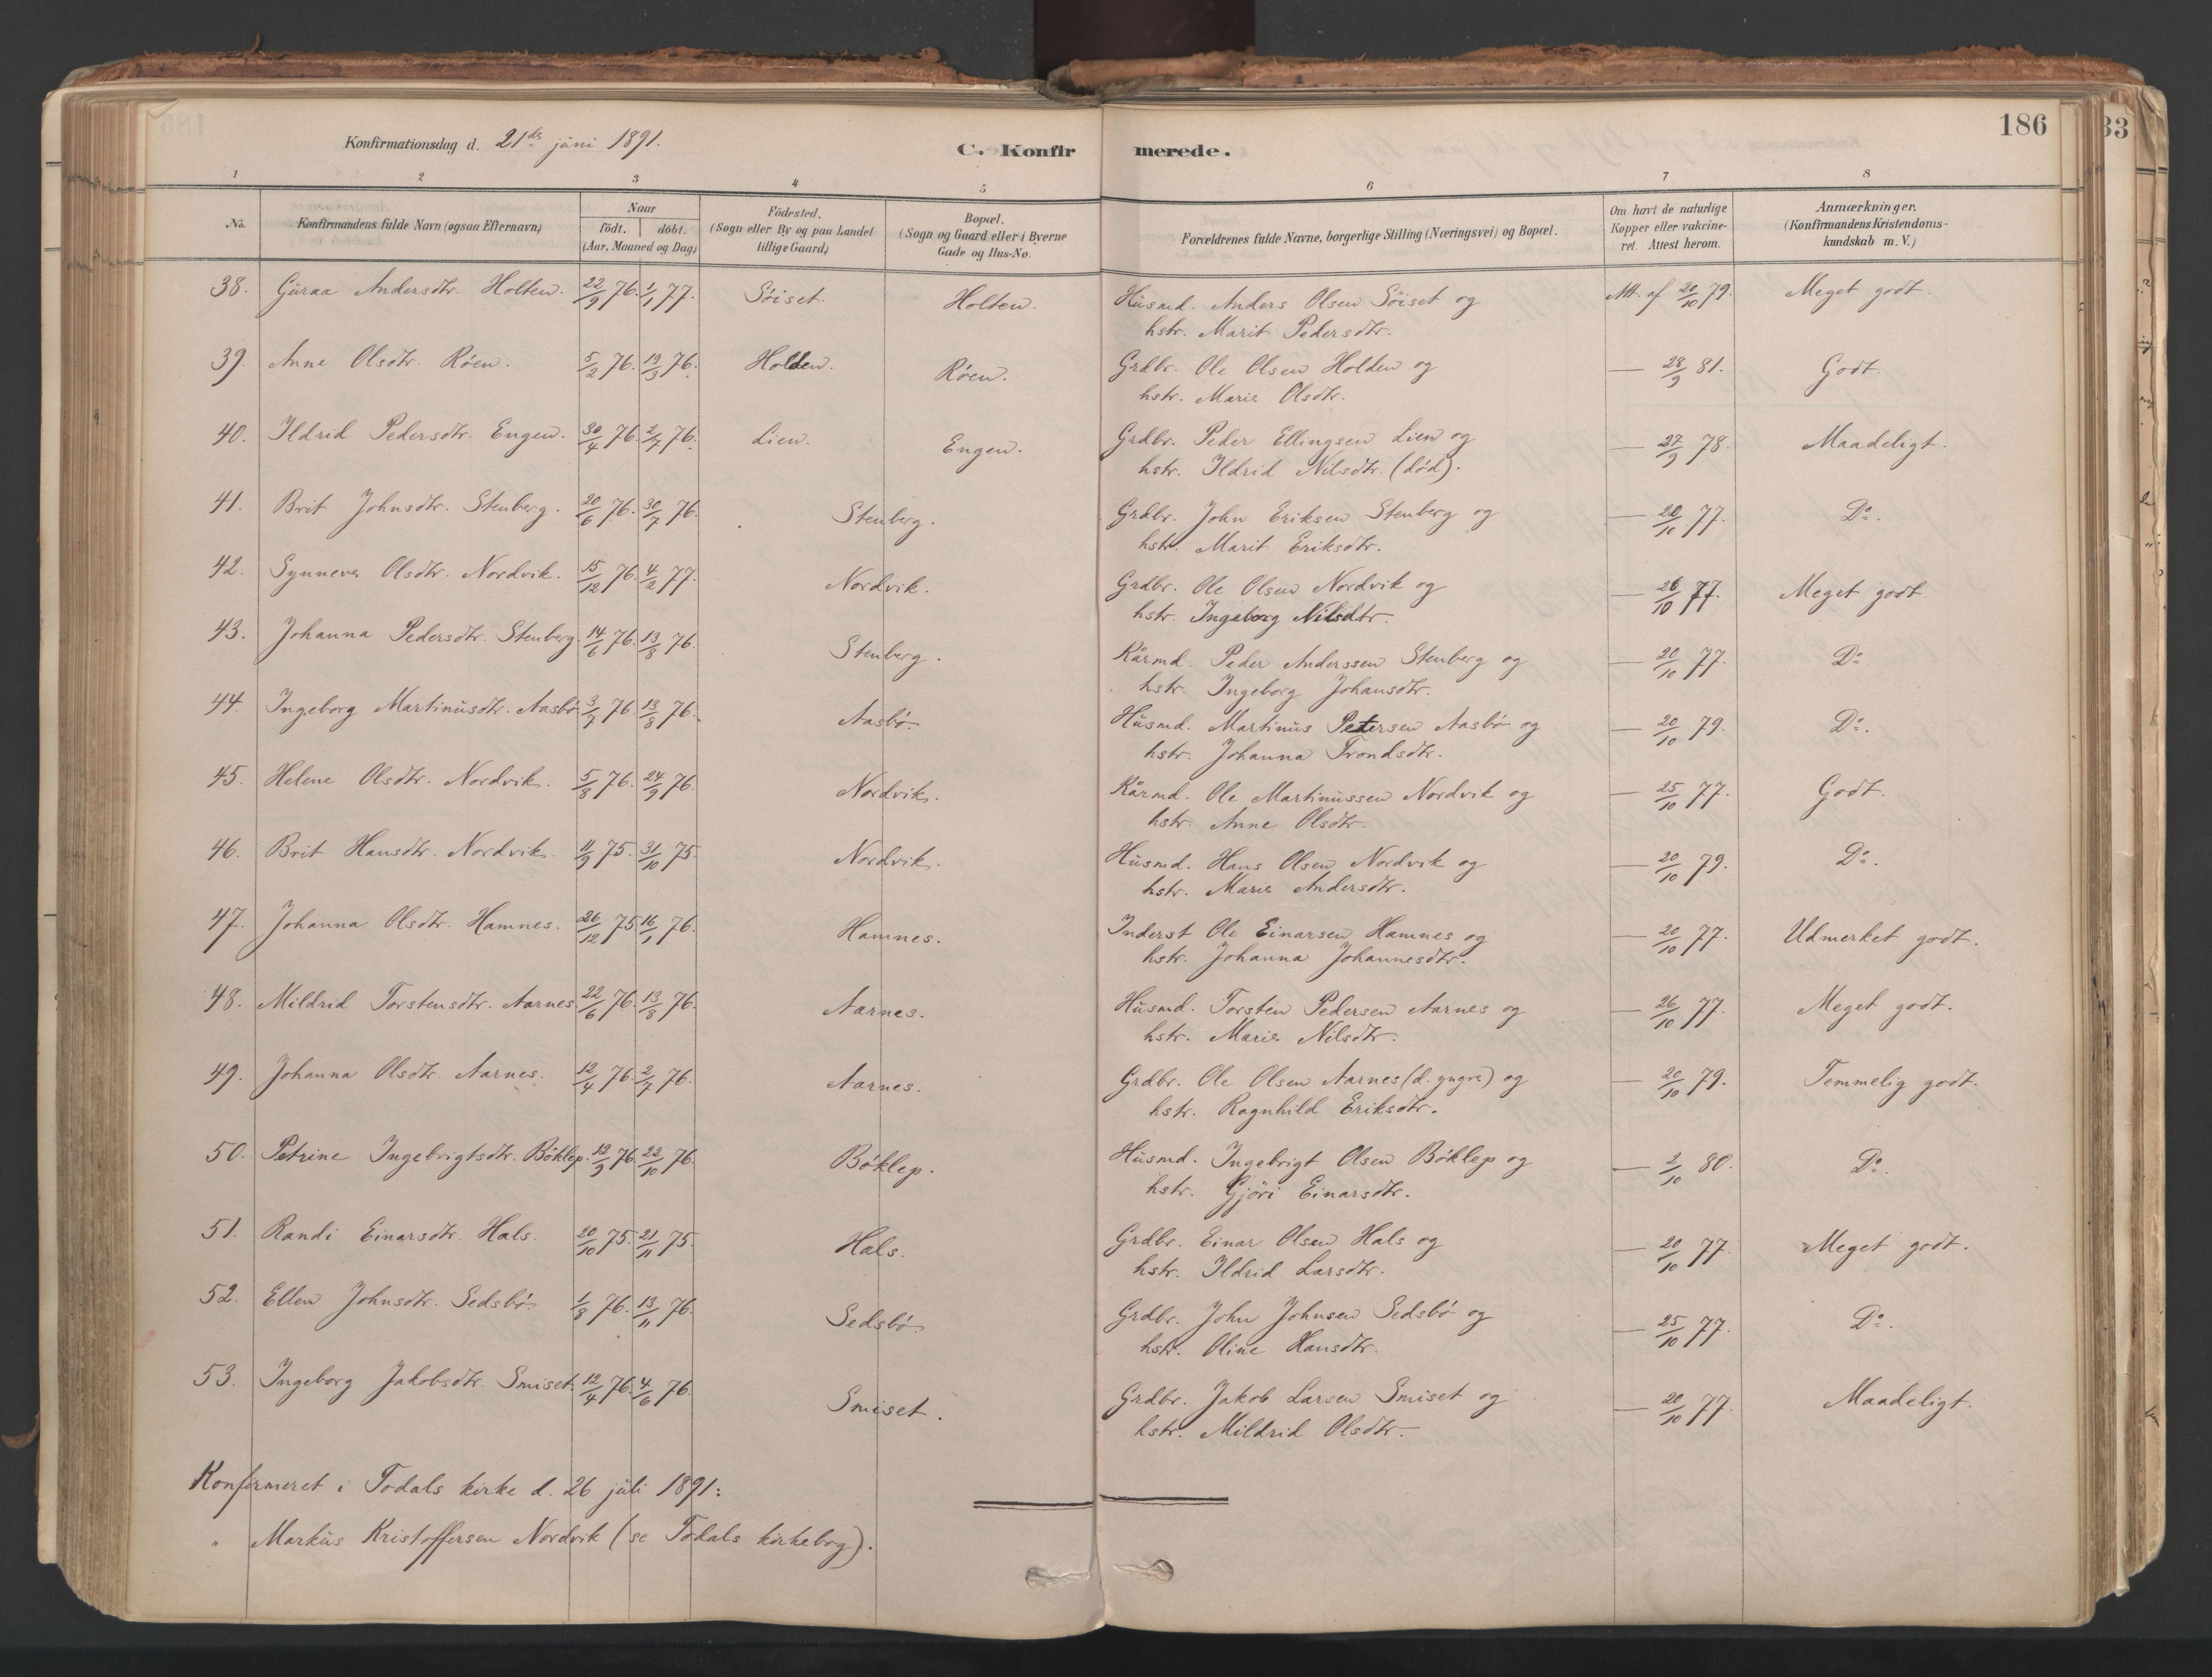 186
33
Konfirmationsdag d. 21de juni 1891.
C. Konfirmerede.
1 2 3 4 5 6 7 8
No.
Konfirmandens fulde Navn (ogsaa Efternavn)
Naar
födt. döbt.
(Aar, Maaned og Dag)
Födested.
(Sogn eller By og paa Landet
tillige Gaard)
Bopæl.
(Sogn og Gaard eller i Byerne
Gade og Hus-No.
Forældrenes fulde Navne, borgerlige Stilling (Næringsvei) og Bopæl.
Om havt de naturlige
Kopper eller vakcine-
ret. Attest herom.
Anmærkninger.
(Konfirmandens Kristendoms-
kundskab m. V.)
38. Guraa Andersdtr. Holten. 22/9 76. 1/1 77. Söiset. Holten. Husmd. Anders Olsen Söiset og Att. af 20/10 79. Meget godt.
hstr. Marit Pedersdtr.
39. Anne Olsdtr. Röen. 5/2 76. 19/3 76. Holden. Röen. Grdbr. Ole Olsen Holden og — 28/9 81. Godt.
hstr. Marie Olsdtr.
40. Ildrid Pedersdtr. Engen. 30/4 76. 2/7 76. Lien. Engen. Grdbr. Peder Ellingsen Lien og — 27/9 78. Maadeligt.
hstr. Ildrid Nilsdtr. (död).
41. Brit Johnsdtr. Stenberg. 20/6 76. 30/7 76. Stenberg. Grdbr. John Eriksen Stenberg og — 20/10 77. Do.
hstr. Marit Eriksdtr.
42. Synneve Olsdtr. Nordvik. 15/12 76. 4/2 77. Nordvik. Grdbr. Ole Olsen Nordvik og — 26/10 77. Meget godt.
hstr. Ingeborg Nilsdtr.
43. Johanna Pedersdtr. Stenberg. 14/6 76. 13/8 76. Stenberg. Kårmd. Peder Anderssen Stenberg og — 20/10 77. Do.
hstr. Ingeborg Johansdtr.
44. Ingeborg Martinusdtr. Aasbö 3/7 76. 13/8 76. Aasbö. Husmd. Martinus Petersen Aasbö og — 20/10 79. Do.
hstr. Johanna Trondsdtr.
45. Helene Olsdtr. Nordvik. 5/8 76. 24/9 76. Nordvik. Kårmd. Ole Martinussen Nordvik og — 25/10 77. Godt.
hstr. Anne Olsdtr.
46. Brit Hansdtr. Nordvik. 11/9 75. 31/10 75. Nordvik. Husmd. Hans Olsen Nordvik og — 20/10 79. Do.
hstr. Marie Andersdtr.
47. Johanna Olsdtr. Hamnes. 26/12 75. 16/1 76. Hamnes. Inderst Ole Einarsen Hamnes og — 20/10 77. Udmerket godt.
hstr. Johanna Johannesdtr.
48. Mildrid Torstensdtr. Aarnes. 22/6 76. 13/8 76. Aarnes. Husmd. Torsten Pedersen Aarnes og — 26/10 77. Meget godt.
hstr. Marie Nilsdtr.
49. Johanna Olsdtr. Aarnes. 12/4 76. 2/7 76. Aarnes. Grdbr. Ole Olsen Aarnes (d. yngre) og — 20/10 79. Temmelig godt.
hstr. Ragnhild Eriksdtr.
50. Petrine Ingebrigtsdtr. Böklep. 12/9 76. 22/10 76. Böklep. Husmd. Ingebrigt Olsen Böklep og — 2/10 80. Do.
hstr. Gjöri Einarsdtr.
51. Randi Einarsdtr. Hals. 20/10 75. 21/11 75. Hals. Grdbr. Einar Olsen Hals og — 20/10 77. Meget godt.
hstr. Ildrid Larsdtr.
52. Ellen Johnsdtr. Sedsbö 1/8 76. 13/11 76. Sedsbö Grdbr. John Johnsen Sedsbö og — 25/10 77. Do.
hstr. Oline Hansdtr.
53. Ingeborg Jakobsdtr. Smiset. 12/4 76. 4/6 76. Smiset. Grdbr. Jakob Larsen Smiset og — 20/10 77. Maadeligt.
hstr. Mildrid Olsdtr.
Konfirmeret i Todals kirke d. 26 juli 1891:
" Markus Kristoffersen Nordvik (se Todals kirkebog).